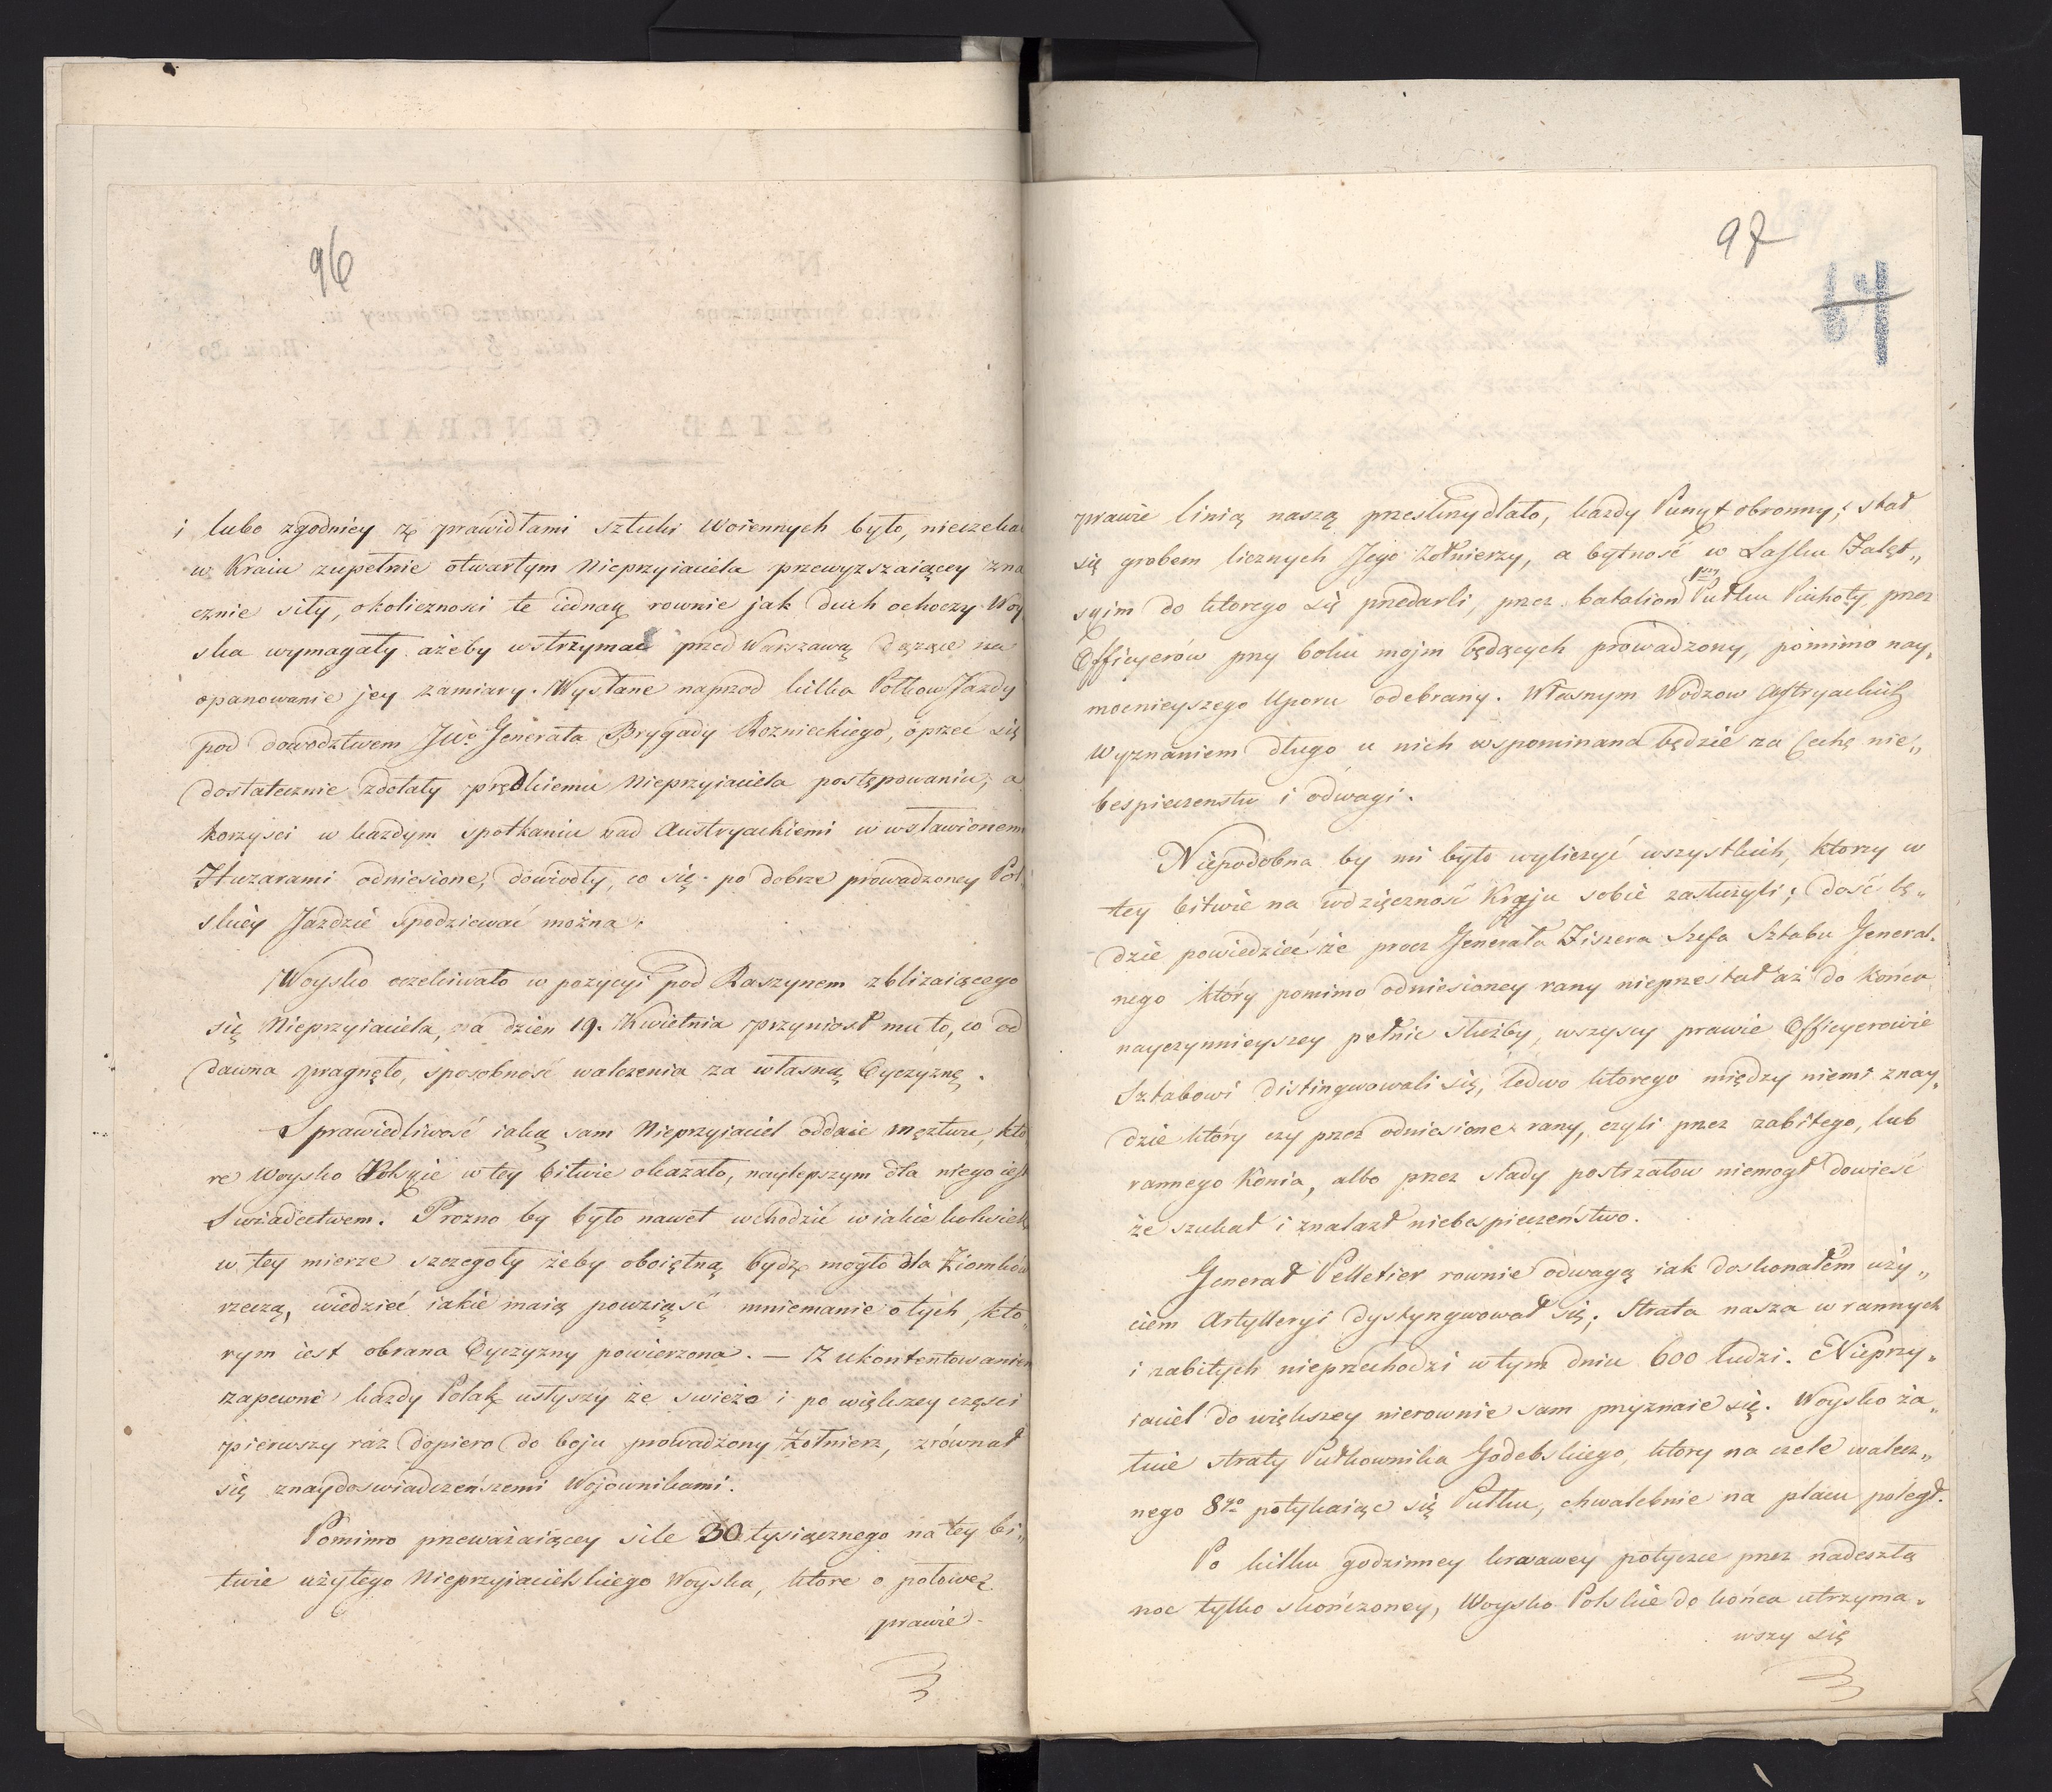 96
i lubo zgodniey z prawidłami sztuki Woiennych było, nieczeka
w Kraiu zupełnie otwartym Nieprzyiaciela przewyzszaiącey zna
cznie siły, okolicznosci te iednak rownie jak duch ochoczy Woy
ska wymagały ażeby wstrzymać przed Warszawą dążące na
opanowanie jey zamiary. Wysłane naprzod kilka Połkow Jazdy
pod dowodztwem JWo. Generała Brygady Roznieckiego, oprzeć się
dostatecznie zdołały prędkiemu Nieprzyiaciela postępowaniu, a
korzysci w każdym spotkaniu nad Austryackiemi wwsławionem
Huzarami odniesione, dowiodły, co się po dobrze prowadzoney Pol
skiey Jazdzie spodziewać można.
Woysko oczekiwało w pozycyi pod Raszynem zbliżaiącego
się Nieprzyiaciela, na dzien 19. Kwietnia przyniosł mu to, co od
dawna pragnęło, sposobność walczenia za własną Oyczyznę.
Sprawiedliwość iaką sam Nieprzyiaciel oddaie męztwu, któ
re Woysko Polskie w tey bitwie okazało, naylepszym dla niego iest
Swiadectwem. Prozno by było nawet wchodzić w iakie kolwiek
w tey mierze szczegoły żeby oboiętną bydz mogło dla Ziomków
rzeczą, wiedzieć iakie maią powziąść mniemanie o tych, któ„
rym iest obrana Oyczyzny powierzona. — Z ukontentowaniem
zapewne każdy Polak usłyszy że swieżo i po większey części
pierwszy raz dopiero do boju prowadzony Żołnierz, zrównał
się znaydoswiadczeńszemi Wojownikami.
Pomimo przeważaiącey sile 30 tysiącznego na tey bi„
twie użytego Nieprzyiacielskiego Woyska, które o połowę
prawie
97
64
prawie linią naszą przeskrzydlało, każdy Punkt obronny, stał
się grobem licznych Jego Żołnierzy, a bytność w Lasku Falęt„
skim do którego się przedarli, przez batalion 1go Pułku Piechoty, przez
Officyerów przy boku mojm będących prowadzony, pomimo nay„
mocnieyszego Uporu odebrany. Własnym Wodzow Austryackich
Wyznaniem długo u nich wspominana będzie za Cechę nie„
bespieczenstw i odwagi.
Niepodobna by mi było wyliczyć wszystkich, ktorzy w
tey bitwie na wdzięczność Kraju sobie zasłużyli; dość bę„
dzie powiedzieć że procz Generała Fiszera Szefa Sztabu General„
nego który pomimo odniesioney rany nieprzestał aż do końca
nayczynnieyszey pełnic służby, wszyscy prawie Officyerowie
Sztabowi distingwowali się, ledwo ktorego między niemi znay„
dzie który czy przez odniesione rany, czyli przez zabitego, lub
rannego Konia, albo przez slady postrzałow niemogł dowieść
że szukał i znalazł niebespieczeństwo.
Generał Pelletier rownie odwagą iak doskonałem uży„
ciem Artylleryi dystyngwował się; Strata nasza w rannych
i zabitych nieprzechodzi w tym dniu 600 ludzi. Nieprzy„
iaciel do większey nierownie sam przyznaie się. Woysko ża„
łuie straty Pułkownika Godebskiego, ktory na czele walecz„
nego 8go potykaiąc się Pułku, chwalebnie na placu poległ.
Po kilku godzinney krwawey potyczce przez nadeszłą
noc tylko skończoney, Woysko Polskie do końca utrzyma„
wszy się